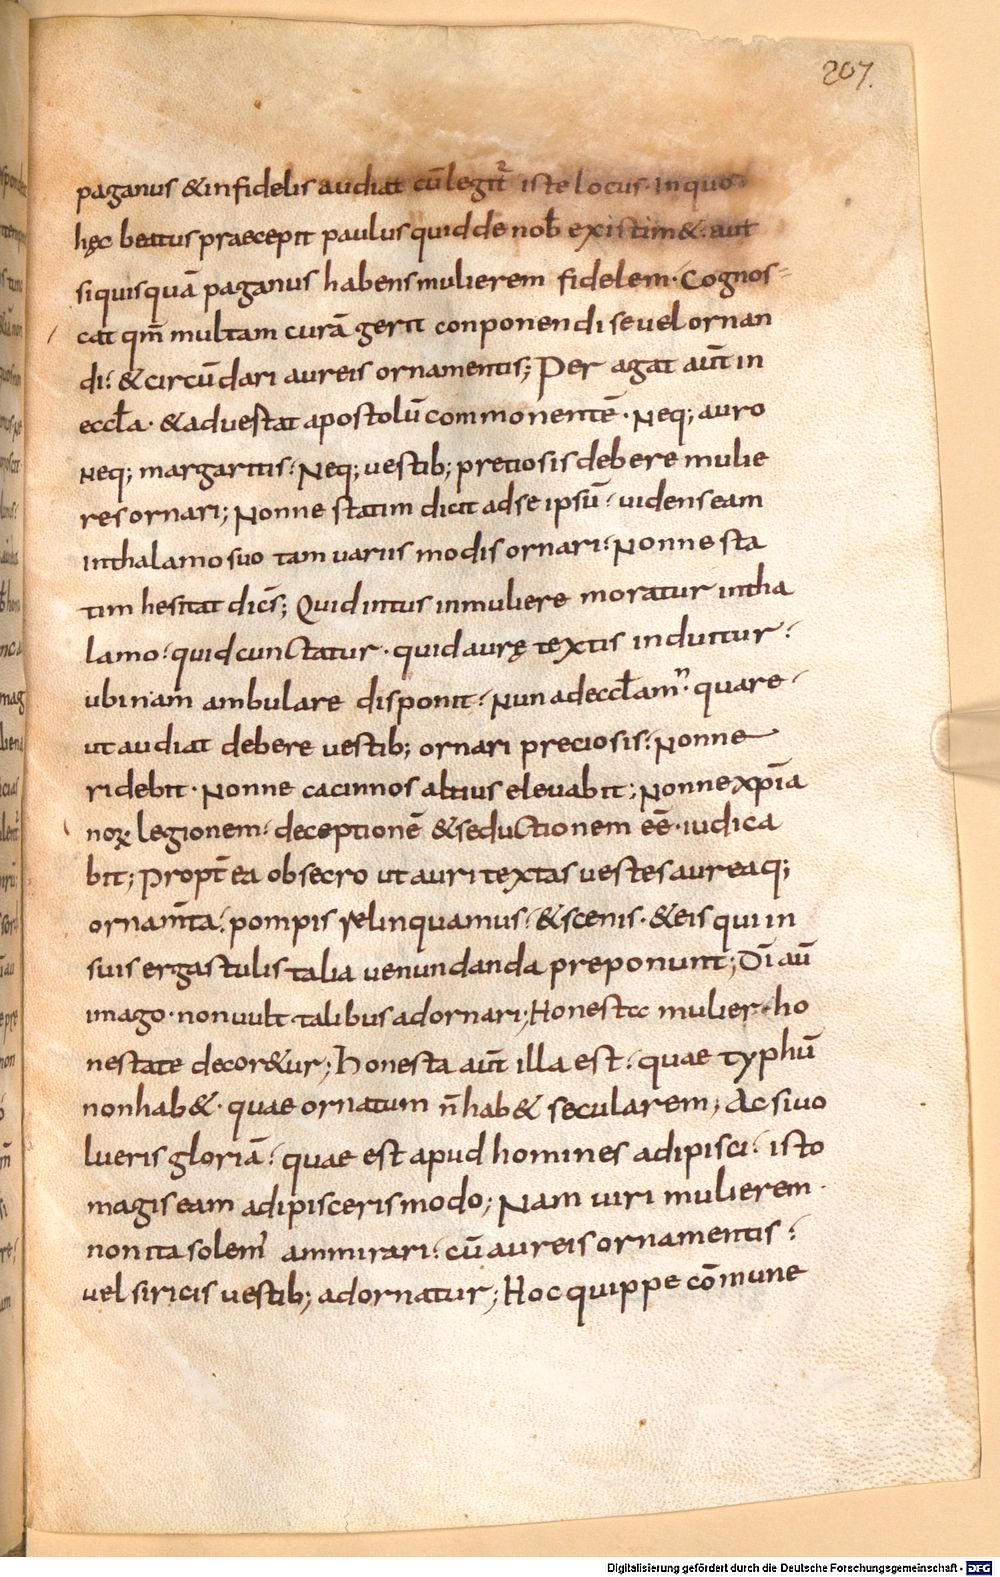 207.
paganus & infidelis audiat cū legit̄ iste locus. In quo
hęc beatus praecepit paulus quid de nob̄ existim&. aut
si quisquā paganus habens mulierem fidelem. Cognos-
cat qm̄ multam curā gerit conponendi se uel ornan
di. & circūdari aureis ornamentis; Per agat aūt in
eccl̄a. & aduestat apostolū commonentē. Neq; auro
Neq; margaritis. Neq; uestib; preciosis debere mulie
res ornari; Nonne statim dicit ad se ipsū. uidens eam
In thalamo suo tam uariis modis ornari. Nonne sta
tim hesitat dicēs; Quid intus in muliere moratur in tha
lamo. quid cunctatur. quid aurę textis induitur.
ubi nam ambulare disponit. Nun ad eccl̄am. quare
ut audiat debere uestib; ornari preciosis. Nonne
ridebit. Nonne cacinnos altius eleuabit; Nonne xp̄ia
noꝝ legionem. deceptionē & seductionem eē. iudica
bit; Propt̄ ea obsecro ut auri textas uestes aureaq;
ornam̄ta. pompis relinquamus. & scenis. & eis qui in
suis ergastulis talia uenundanda preponunt; Dī aū
imago. non uult talibus adornari; Honesta mulier. ho
nestate decor&ur; Honesta aūt illa est. quae typhū
non hab&. quae ornatum n̄ hab& secularem; Ac si uo
lueris gloriā. quae est apud homines adipisci. isto
magis eam adipisceris modo; Nam uiri mulierem.
non ita solent ammirari. cū aureis ornamentis.
uel siricis uestib; adornatur; Hoc quippe cōmune
Digitalisierung gefördert durch die Deutsche Forschungsgemeinschaft - DFG